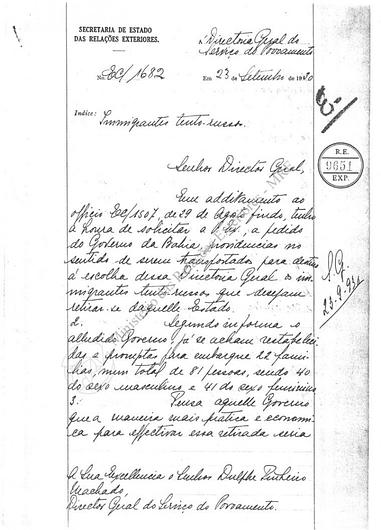 SECRETARIA DE ESTADO
DAS RELAÇÕES EXTERIORES.
Directoria Geral do
Serviço do Povoamento
No. EC/1682
Em 23 de Setembro de 1930
Indice: Immigrantes teuto-russos.
R.E.
9651
EXP.
Senhor Director Geral,
Em additamento ao
officio EC/1507, de 29 de Agosto findo, tenho
a honra de solicitar a V. Ex., a pedido
do Governo da Bahia, providencias no
sentido de serem transportados para
á escolha dessa Directoria Geral os im-
migrantes teuto-russos que desejam
retirar-se daquelle Estado.
2. Segundo informa o
alludido Governo, já se acham
e promptas para embarque 22 fami-
lias, num total de 81 pessoas, sendo 40
do sexo masculino e 41 do sexo feminino
3. Pensa aquelle Governo
que a maneira mais pratica e economi-
ca para effectivar essa retirada seria
23-9-930
A Sua Excellencia o Senhor Dulphe Pinheiro
Machado,
Director Geral do Serviço do Povoamento.